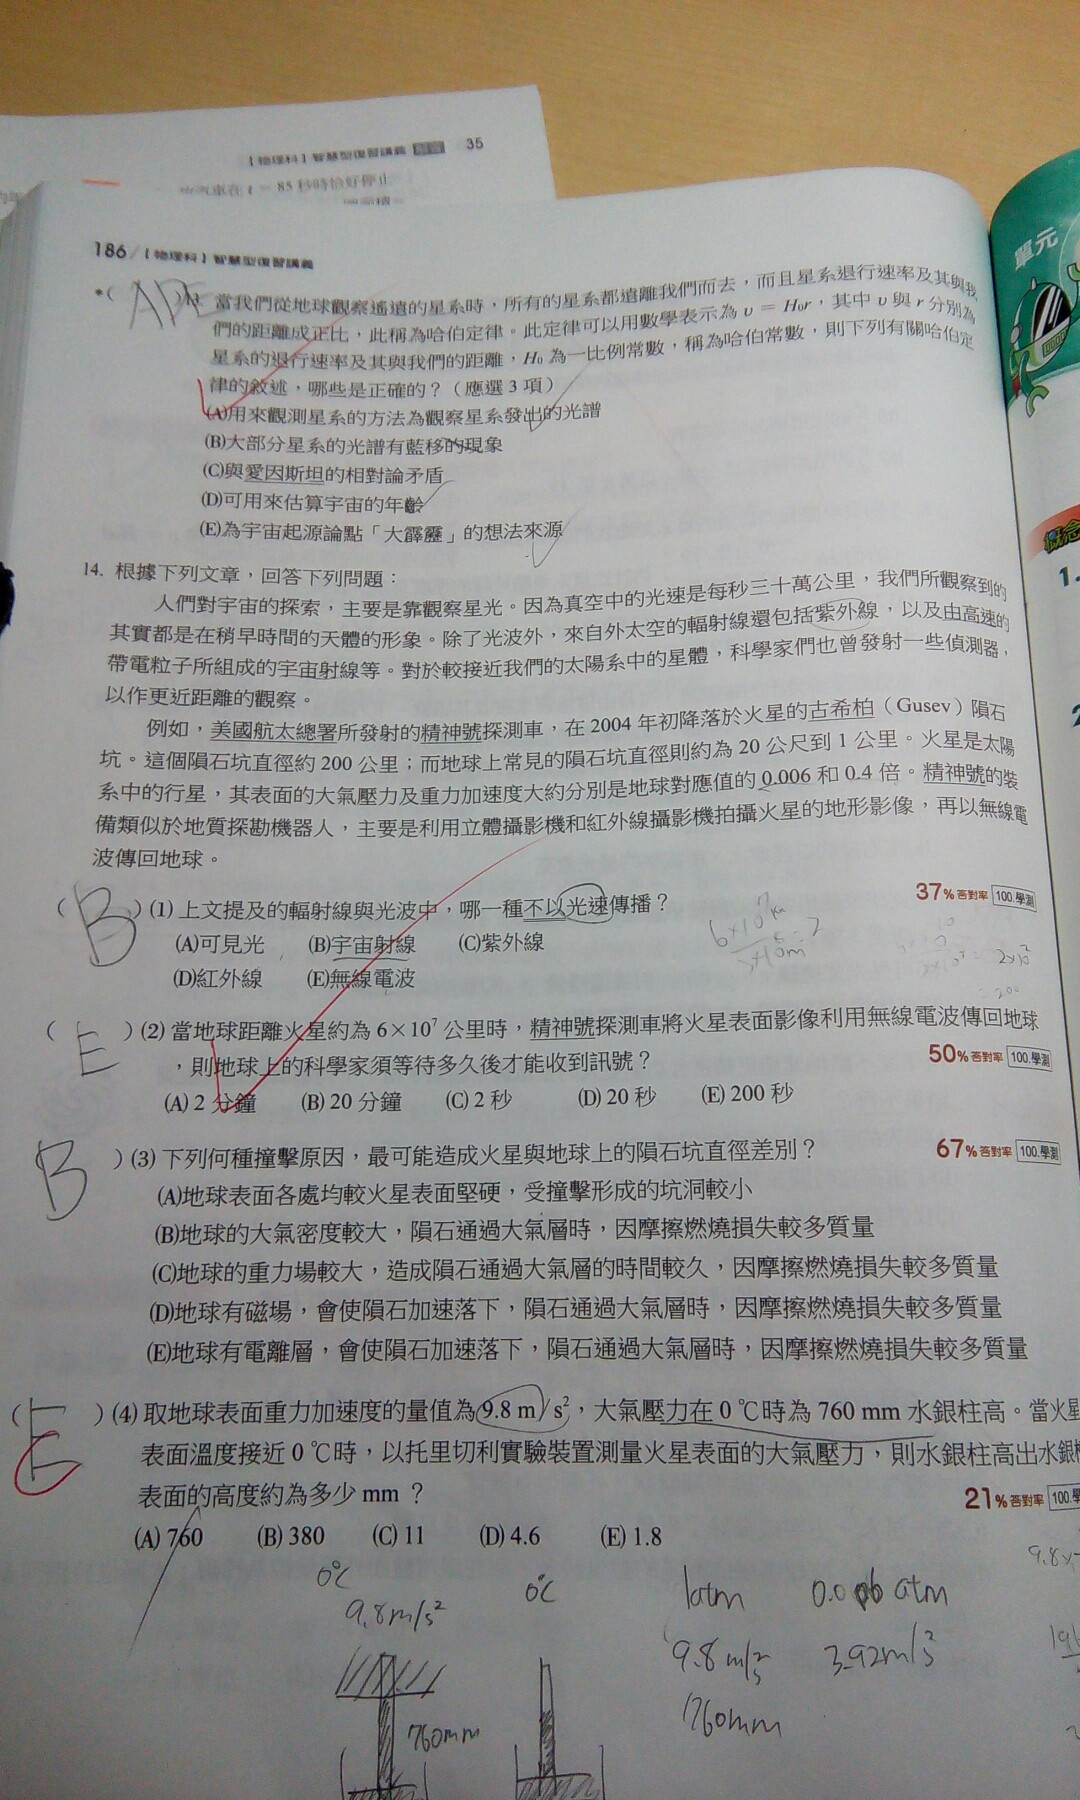 【物理科】智慧型復習講義 解答 35
汽車在 t = 85 秒時恰好停止
單元
186 /【物理科】智慧型復習講義
*( ADE )13. 當我們從地球觀察遙遠的星系時，所有的星系都遠離我們而去，而且星系退行速率及其與我
們的距離成正比，此稱為哈伯定律。此定律可以用數學表示為 υ = H₀r，其中 υ 與 r 分別為
星系的退行速率及其與我們的距離，H₀ 為一比例常數，稱為哈伯常數，則下列有關哈伯定
律的敘述，哪些是正確的？（應選 3 項）
(A)用來觀測星系的方法為觀察星系發出的光譜
(B)大部分星系的光譜有藍移的現象
(C)與愛因斯坦的相對論矛盾
(D)可用來估算宇宙的年齡
(E)為宇宙起源論點「大霹靂」的想法來源
概念
1.
14. 根據下列文章，回答下列問題：
人們對宇宙的探索，主要是靠觀察星光。因為真空中的光速是每秒三十萬公里，我們所觀察到的
其實都是在稍早時間的天體的形象。除了光波外，來自外太空的輻射線還包括紫外線，以及由高速的
帶電粒子所組成的宇宙射線等。對於較接近我們的太陽系中的星體，科學家們也曾發射一些偵測器，
以作更近距離的觀察。
例如，美國航太總署所發射的精神號探測車，在 2004 年初降落於火星的古希柏（Gusev）隕石
坑。這個隕石坑直徑約 200 公里；而地球上常見的隕石坑直徑則約為 20 公尺到 1 公里。火星是太陽
系中的行星，其表面的大氣壓力及重力加速度大約分別是地球對應值的 0.006 和 0.4 倍。精神號的裝
備類似於地質探勘機器人，主要是利用立體攝影機和紅外線攝影機拍攝火星的地形影像，再以無線電
波傳回地球。
37% 答對率 100.學測
( B ) (1) 上文提及的輻射線與光波中，哪一種不以光速傳播？
(A)可見光 (B)宇宙射線 (C)紫外線
(D)紅外線 (E)無線電波
2×10²
= 200
( E ) (2) 當地球距離火星約為 6×10⁷ 公里時，精神號探測車將火星表面影像利用無線電波傳回地球
，則地球上的科學家須等待多久後才能收到訊號？ 50% 答對率 100.學測
(A) 2 分鐘 (B) 20 分鐘 (C) 2 秒 (D) 20 秒 (E) 200 秒
B ) (3) 下列何種撞擊原因，最可能造成火星與地球上的隕石坑直徑差別？ 67% 答對率 100.學測
(A)地球表面各處均較火星表面堅硬，受撞擊形成的坑洞較小
(B)地球的大氣密度較大，隕石通過大氣層時，因摩擦燃燒損失較多質量
(C)地球的重力場較大，造成隕石通過大氣層的時間較久，因摩擦燃燒損失較多質量
(D)地球有磁場，會使隕石加速落下，隕石通過大氣層時，因摩擦燃燒損失較多質量
(E)地球有電離層，會使隕石加速落下，隕石通過大氣層時，因摩擦燃燒損失較多質量
( E ) (4) 取地球表面重力加速度的量值為 9.8 m/s²，大氣壓力在 0 ℃時為 760 mm 水銀柱高。當火星
表面溫度接近 0 ℃時，以托里切利實驗裝置測量火星表面的大氣壓力，則水銀柱高出水銀
表面的高度約為多少 mm ？ 21% 答對率 100.
(A) 760 (B) 380 (C) 11 (D) 4.6 (E) 1.8
0℃ 0℃ 1atm 0.006 atm
9.8m/s² 9.8 m/s² 3.92m/s²
760mm 760mm